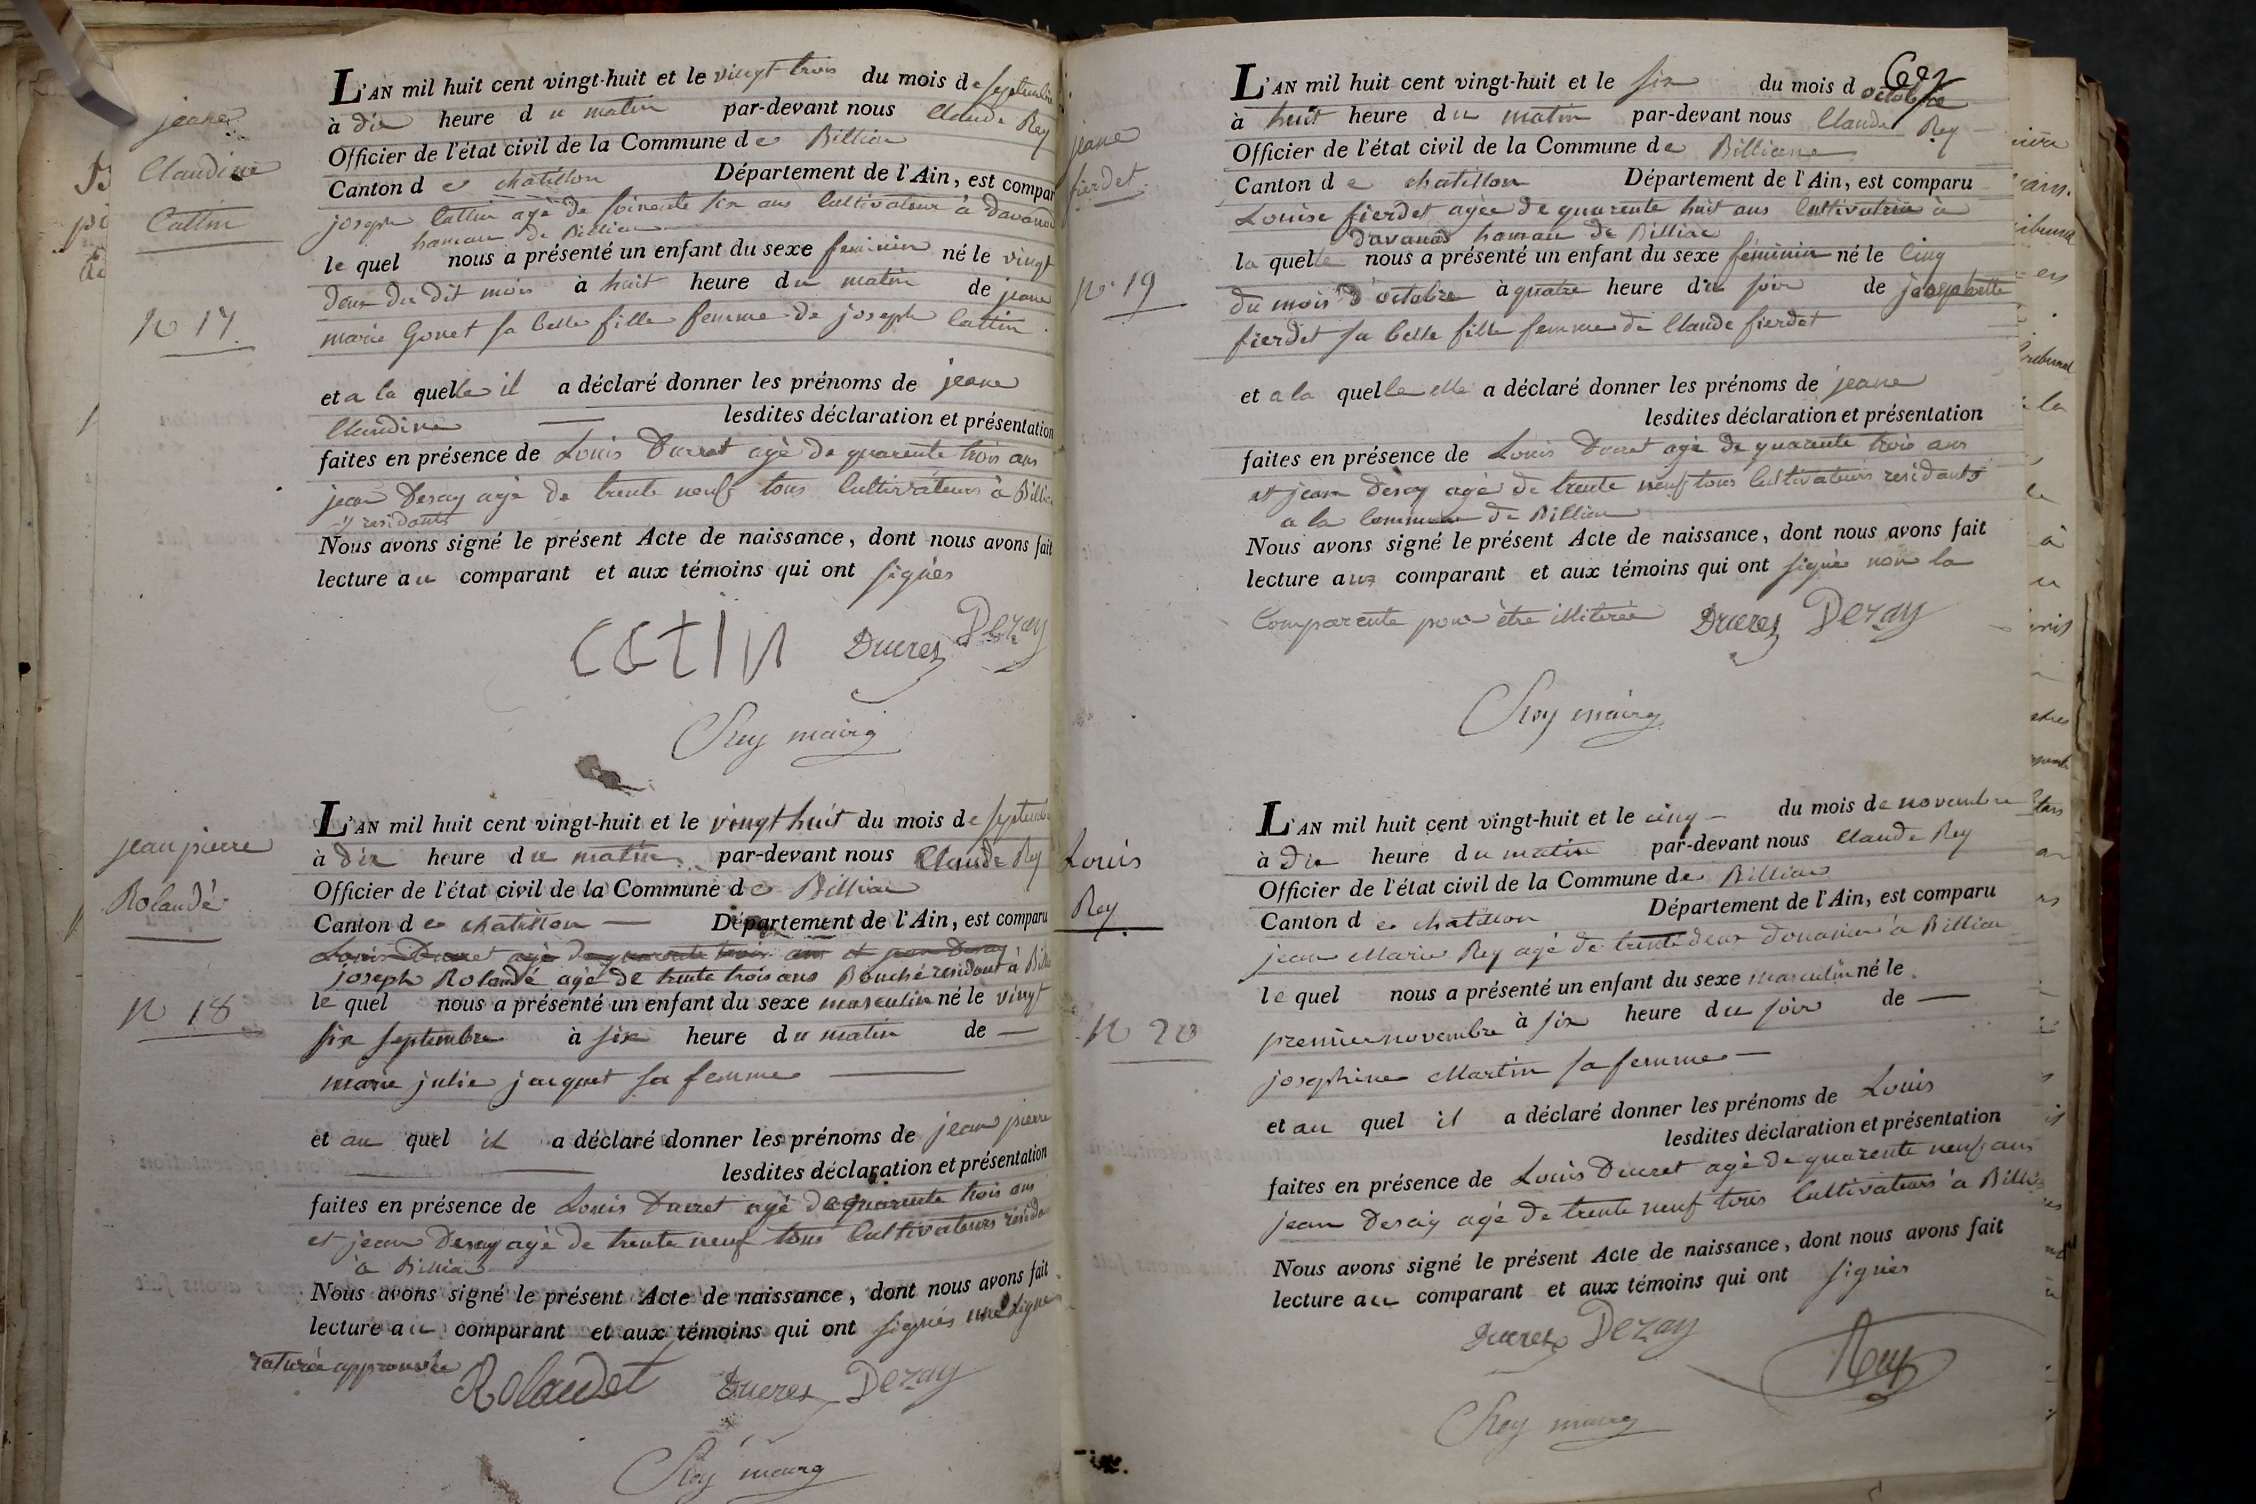 jeane
Claudine
Cattin
N 17
L'AN mil huit cent vingt-huit et le vingt trois du mois de septembre
à dix heure du matin par-devant nous Claude Rey
Officier de l'état civil de la Commune de Billiac
Canton de chatillon Département de l'Ain, est compar
joseph Cattin agé de soixente six ans Cultivateur à davanod
hamau de Billiac
le quel nous a présenté un enfant du sexe feminin né le vingt
deux du dit mois à huit heure du matin de jeane
marie Gonet sa belle fille femme de joseph Cattin
et a la quelle il a déclaré donner les prénoms de jeane
Claudine lesdites déclaration et présentation
faites en présence de Louis Ducret agé de quarente trois ans
jean Desay agé de trente neuf tous Cultivateurs à Billiac
y residants
Nous avons signé le présent Acte de naissance, dont nous avons fait
lecture au comparant et aux témoins qui ont signés
catin Ducret Dezay
Rey maire
jean pierre
Rolandé
N 18
L'AN mil huit cent vingt-huit et le vingt huit du mois de septembre
à dix heure du matin par-devant nous Claude Rey
Officier de l'état civil de la Commune de Billiac
Canton de chatillon Département de l'Ain, est comparu
Louis Ducret agé de quarente trois ans et jean Desay
joseph Rolandé agé de trente trois ans Bouché residant à Bill
le quel nous a présenté un enfant du sexe masculin né le vingt
six septembre à six heure du matin de
marie julie jacquet sa femme
et au quel il a déclaré donner les prénoms de jean pierre
lesdites déclaration et présentation
faites en présence de Louis Ducret agé de quarente trois ans
et jean Desay agé de trente neuf tous Cultivateurs resida
à Billiac
Nous avons signé le présent Acte de naissance, dont nous avons fait
lecture au comparant et aux témoins qui ont signés une ligne
raturée approuvée
Rolandet Ducret Dezay
Rey maire
jeane
fierdet
N 19
L'AN mil huit cent vingt-huit et le six du mois d octobre
à huit heure du matin par-devant nous Claude Rey
Officier de l'état civil de la Commune de Billiac
Canton de chatillon Département de l'Ain, est comparu
Louise fierdet agée de quarente huit ans Cultivatrice à
davanod hamau de Billiac
la quelle nous a présenté un enfant du sexe féminin né le Cinq
du mois d'octobre à quatre heure du soir de josephette
fierdet sa belle fille femme de Claude fierdet
et a la quelle elle a déclaré donner les prénoms de jeane
lesdites déclaration et présentation
faites en présence de Louis Ducret agé de quarente trois ans
et jean Desay agé de trente neuf tous Cultivateurs residants
a la Commune de Billiac
Nous avons signé le présent Acte de naissance, dont nous avons fait
lecture aux comparant et aux témoins qui ont signés non la
Comparente pour être illiterée Ducret Dezay
Rey maire
Louis
Rey
N 20
L'AN mil huit cent vingt-huit et le cinq du mois de novembre
à dix heure du matin par-devant nous Claude Rey
Officier de l'état civil de la Commune de Billiac
Canton de chatillon Département de l'Ain, est comparu
jean Marie Rey agé de trente deux douanier à Billiac
le quel nous a présenté un enfant du sexe masculin né le
premier novembre à six heure du soir de
josephine Martin sa femme
et au quel il a déclaré donner les prénoms de Louis
lesdites déclaration et présentation
faites en présence de Louis Ducret agé de quarente neuf ans
jean Desay agé de trente neuf tous Cultivateurs à Billi
Nous avons signé le présent Acte de naissance, dont nous avons fait
lecture au comparant et aux témoins qui ont signés
Ducret Dezay Rey
Rey maire